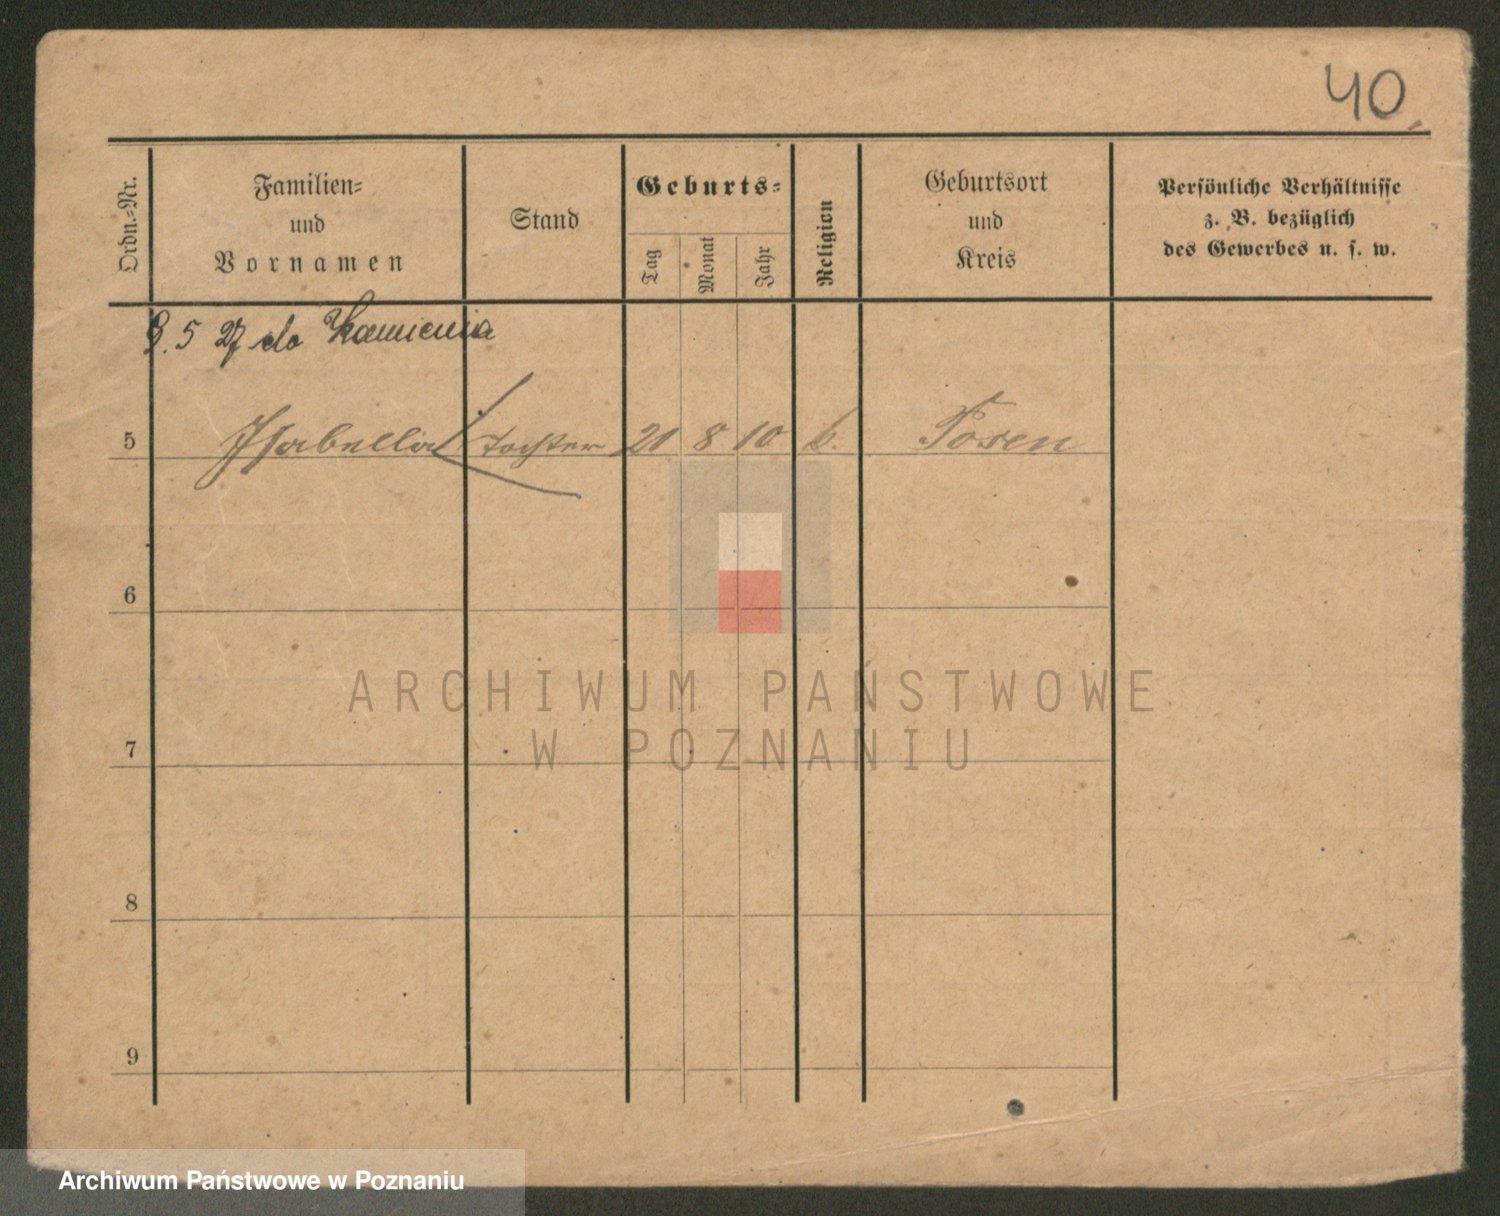 40
Ordn.-Nr.
Familien-
und
Vornamen
Stand
Geburts-
Tag
Monat
Jahr
Religion
Geburtsort
und
Kreis
Persönliche Verhältnisse
z. B. bezüglich
des Gewerbes u. s. w.
9.5 27 do Kamienia
5 Isabella Tochter 21 8 10 k. Posen
6
7
8
9
ARCHIWUM PAŃSTWOWE
W POZNANIU
Archiwum Państwowe w Poznaniu